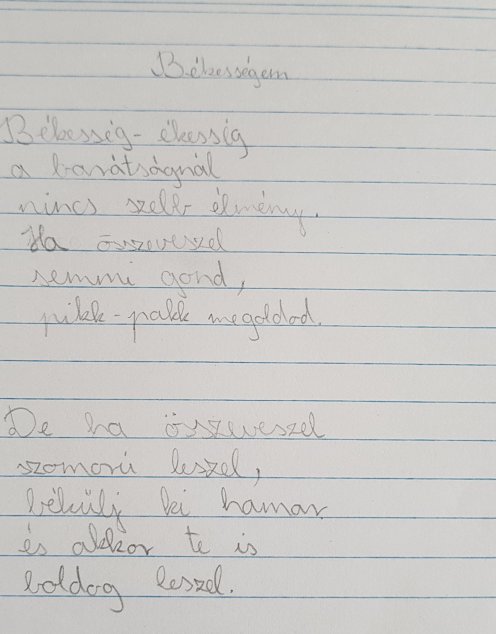 Békességem
Békesség- ékesség
a barátságnál
nincs szebb élmény.
Ha összeveszel
semmi gond,
pikk-pakk megoldod.
De ha összeveszel
szomorú leszel,
békülj ki hamar
és akkor te is
boldog leszel.